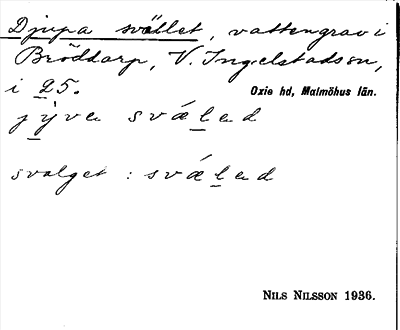 Djupa svället, vattengrav i
Bröddarp, V. Ingelstads sn,
i 25.
Oxie hd, Malmöhus län.
jyva svælad
svalget : svælad
NILS NILSSON 1936.